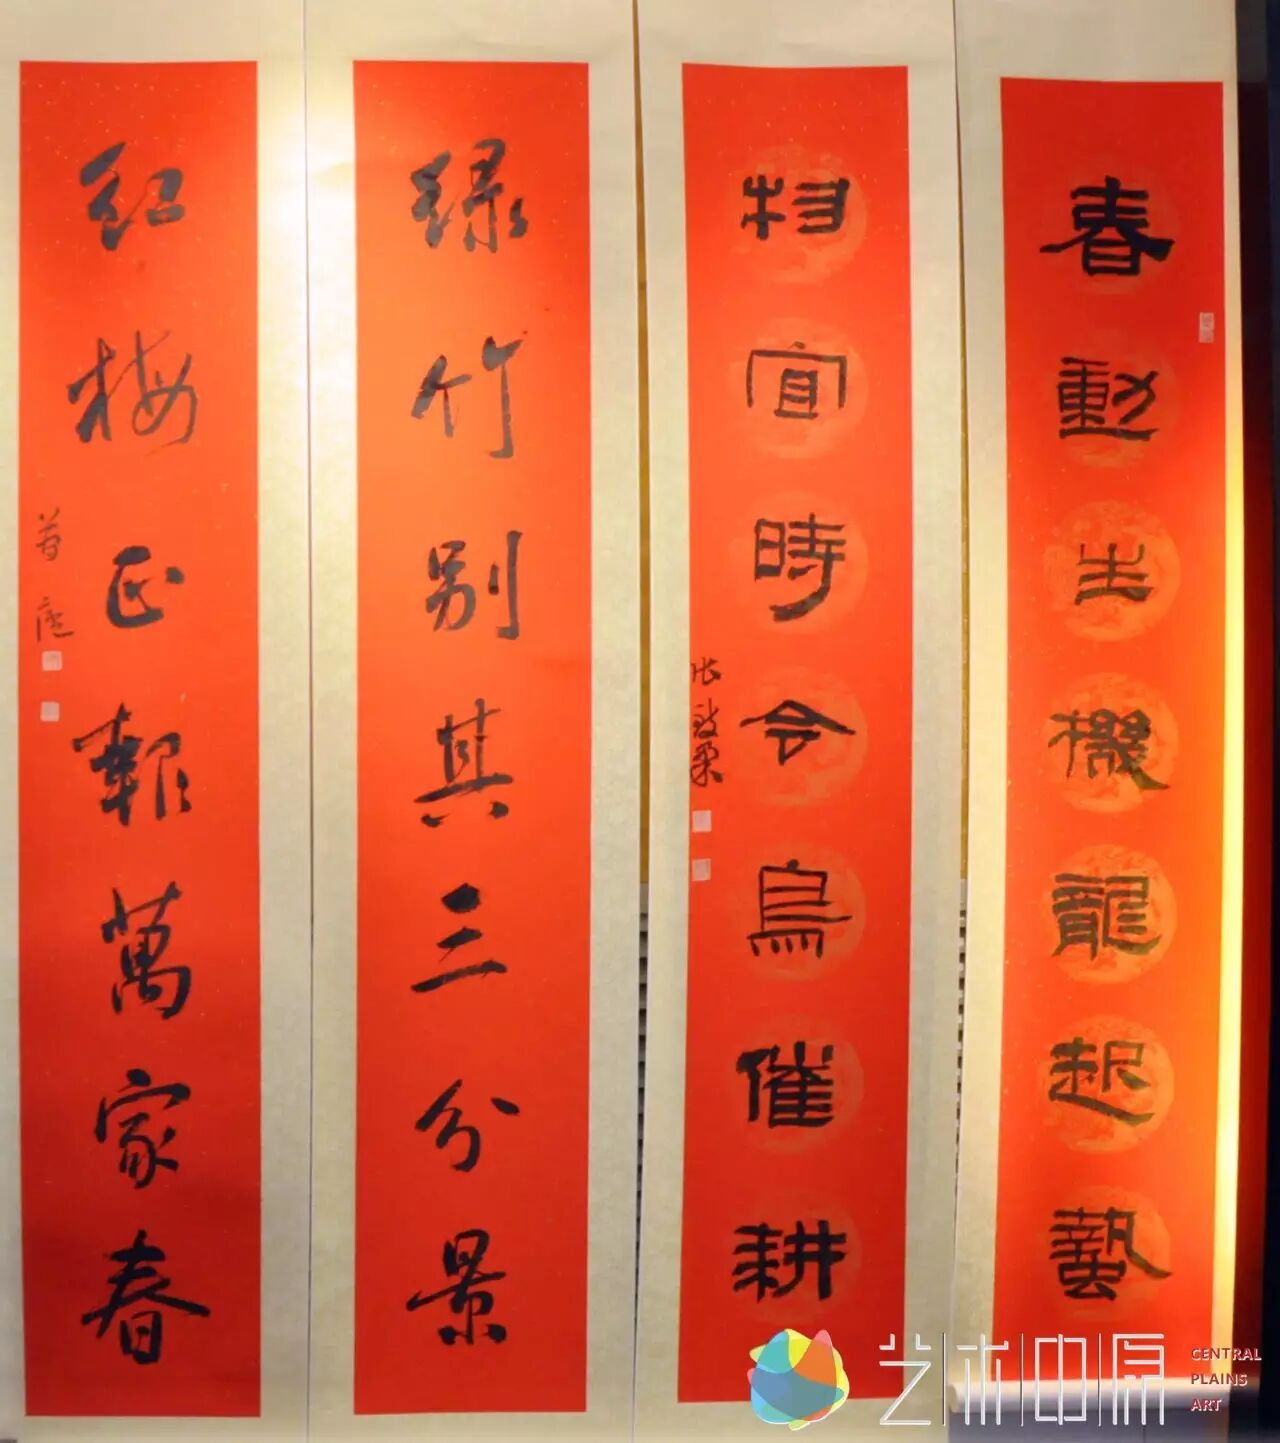 春動生機龍起蟄
村宜時令鳥催耕
張
绿竹别具三分景
红梅正報萬家春
艺术中原
CENTRAL
PLAINS
ART